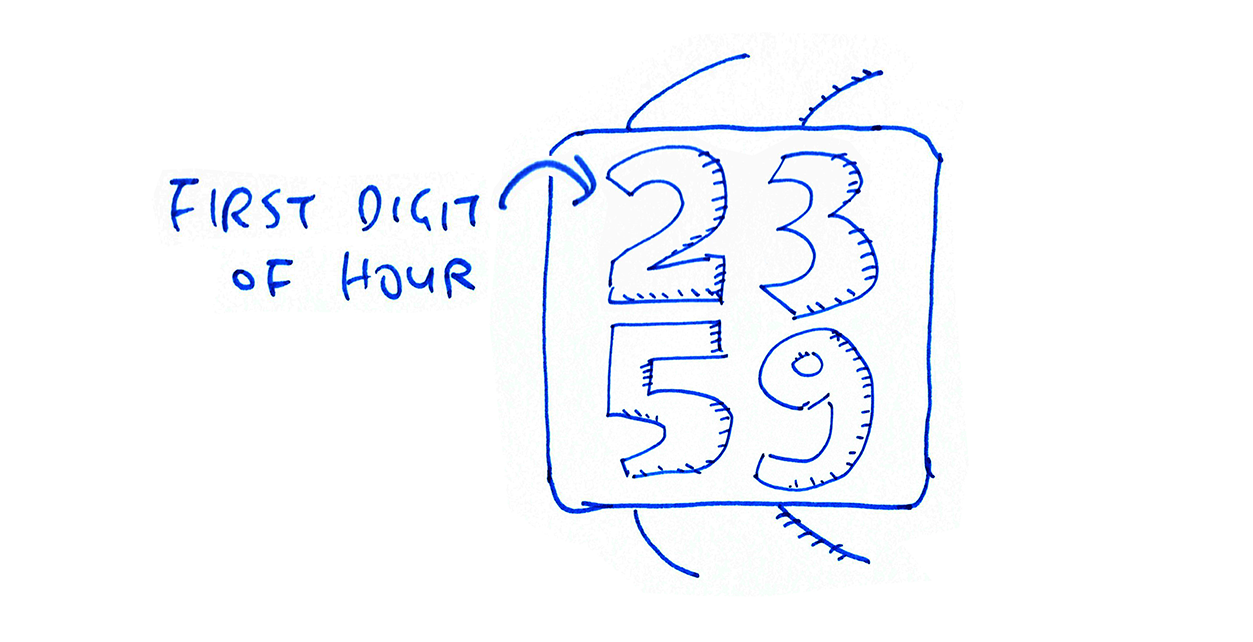 FIRST DIGIT
OF HOUR
23
59